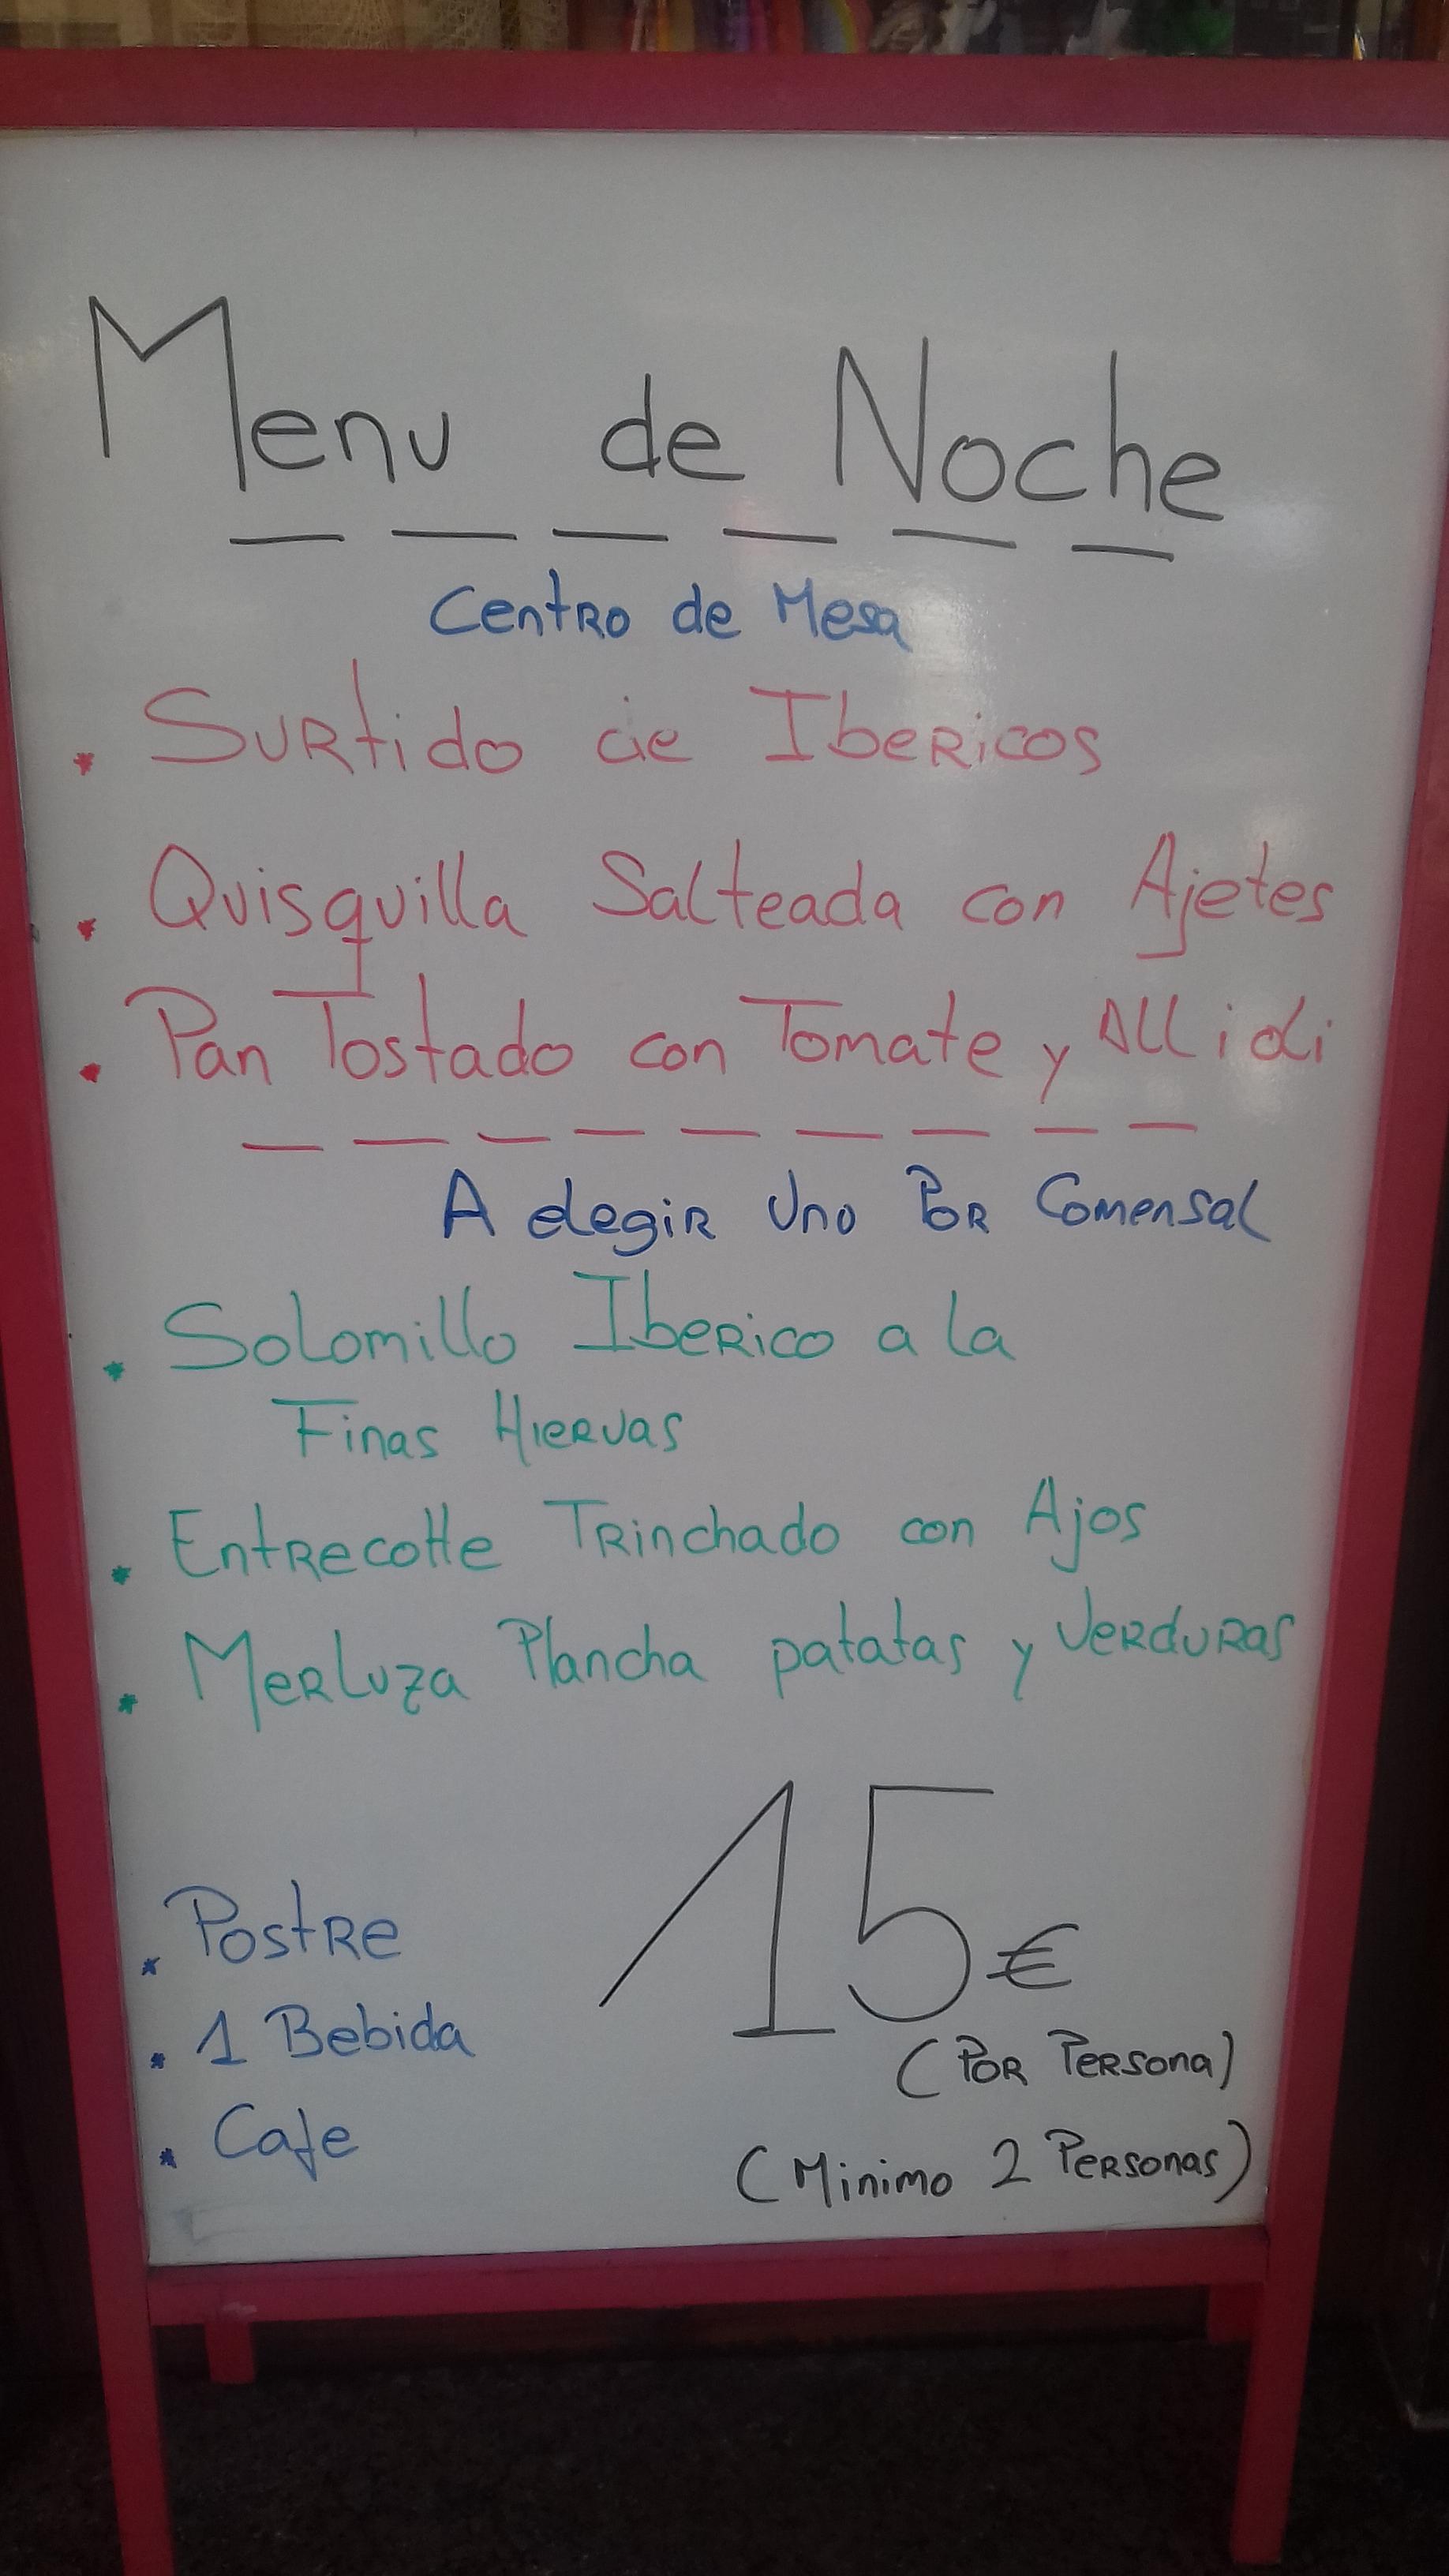 Menu de Noche
Centro de Mesa
Surtido de Ibericos
Quisquilla Salteada con Ajetes
Pan Tostado con Tomate y Allioli
A elegir Uno Por Comensal
Solomillo Iberico a la
Finas Hiervas
Entrecotte Trinchado con Ajos
Merluza Plancha patatas y Verduras
15€
Postre
(Por Persona)
1 Bebida
Cafe
(Minimo 2 Personas)